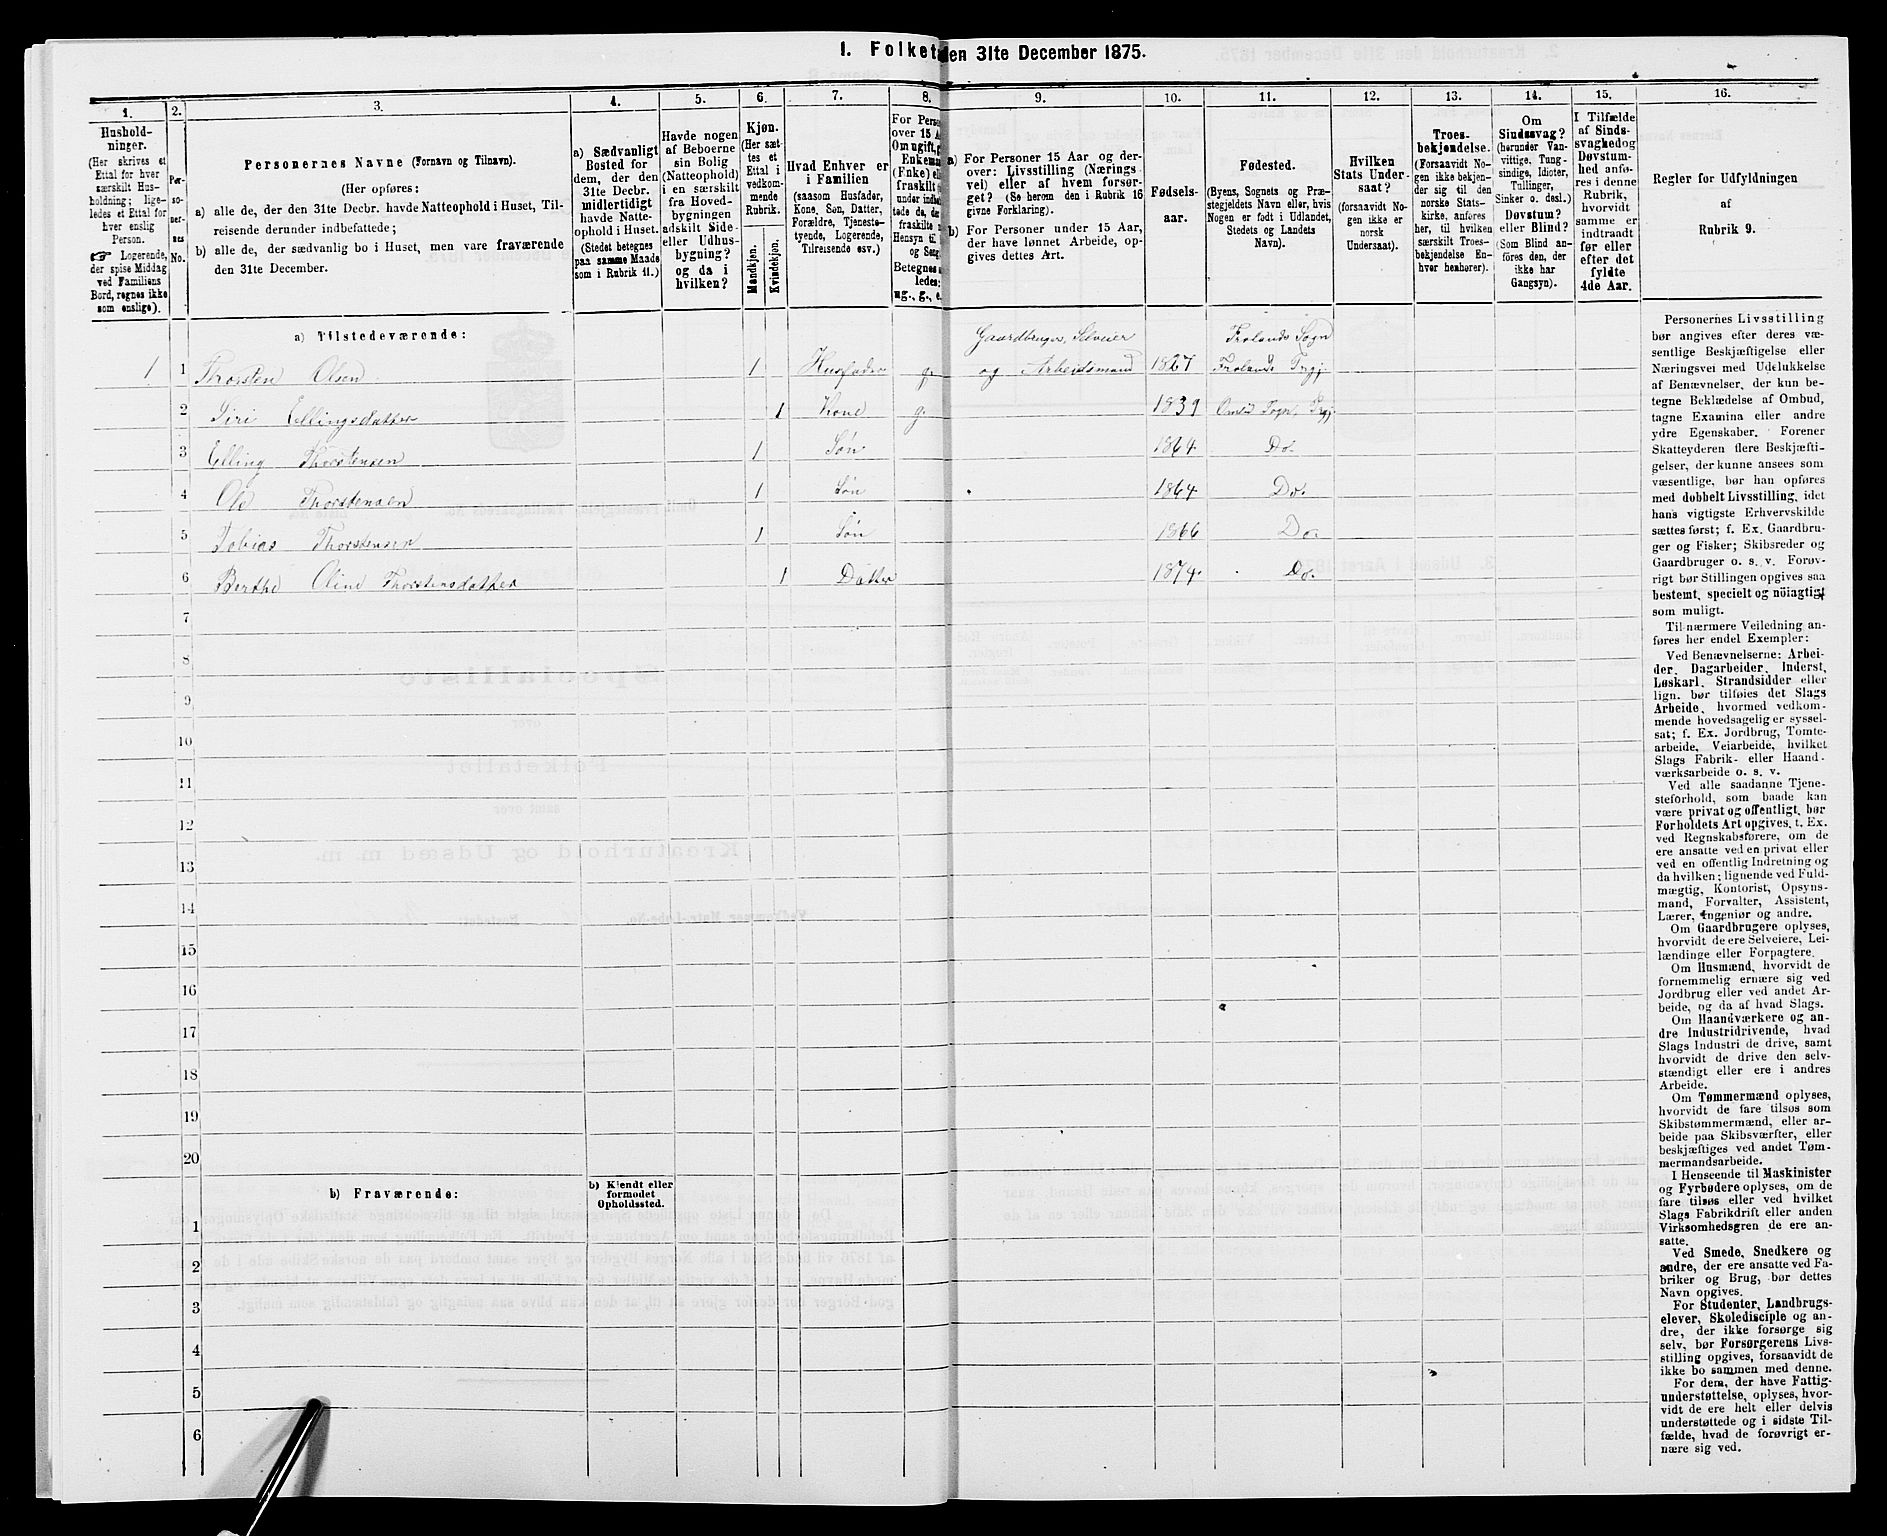 1. Folket
den 31te December 1875.
1.
Hushold-
ninger.
(Her skrives et
Ettal for hver
særskilt Hus-
holdning; lige-
ledes et Ettal for
hver enslig
Person.
☞ Logerende,
der spise Middag
ved Familiens
Bord, regnes ikke
som enslige).
2.
Per-
so-
ner-
nes
No.
3.
Personernes Navne (Fornavn og Tilnavn).
(Her opføres:
a) alle de, der den 31te Decbr. havde Natteophold i Huset, Til-
reisende derunder indbefattede;
b) alle de, der sædvanlig bo i Huset, men vare fraværende
den 31te December.
4.
a) Sædvanligt
Bosted for
dem, der den
31te Decbr.
midlertidigt
havde Natte-
ophold i Huset.
(Stedet betegnes
paa samme Maade
som i Rubrik 11.)
5.
Havde nogen
af Beboerne
sin Bolig
(Natteophold)
i en særskilt
fra Hoved-
bygningen
adskilt Side-
eller Udhus-
bygning?
og da i
hvilken?
6.
Kjøn.
(Her sæt-
tes et
Ettal i
vedkom-
mende
Rubrik.
Mandkjøn.
Kvindekjøn.
7.
Hvad Enhver er
i Familien
(saasom Husfader,
Kone, Søn, Datter,
Forældre, Tjeneste-
tyende, Logerende,
Tilreisende osv.)
8.
For Perso
over 15 A
Om ugift, g
Enkema
(Enke) el
fraskilt
under indbe
tede de, de
fraskilte
Hensyn til
og Seng
Betegnes
ledes:
ug., g., e.
9.
a) For Personer 15 Aar og der-
over: Livsstilling (Nærings
vei) eller af hvem forsør-
get? (Se herom den i Rubrik 16
givne Forklaring).
b) For Personer under 15 Aar,
der have lønnet Arbeide, op-
gives dettes Art.
10.
Fødsels-
aar.
11.
Fødested.
(Byens, Sognets og Præ-
stegjeldets Navn eller, hvis
Nogen er født i Udlandet,
Stedets og Landets
Navn).
12.
Hvilken
Stats Under-
saat?
(forsaavidt No-
gen ikke er
norsk
Undersaat).
13.
Troes-
bekjendelse.
(Forsaavidt No-
gen ikke bekjen-
der sig til den
norske Stats-
kirke, anføres
her, til hvilken
særskilt Troes-
bekjendelse En-
hver henhører).
14.
Om
Sindssvag?
(herunder Van-
vittige, Tung-
sindige, Idioter,
Tullinger,
Sinker o. desl.)
Døvstum?
eller Blind?
(Som Blind an-
føres den, der
ikke har
Gangsyn).
15.
I Tilfælde
af Sinds-
svaghed og
Døvstum-
hed anfø-
res i denne
Rubrik,
hvorvidt
samme er
indtraadt
før eller
efter det
fyldte
4de Aar.
16.
Regler for Udfyldningen
af
Rubrik 9.
a) Tilstedeværende:
Gaardbruger, Selveier Frolands Sogn
1 1 Thorsten Olsen 1 Husfader g. og Arbeidsmand 1827 Frolands Prgj.
2 Siri Ellingsdatter 1 Kone g. 1839 Omlid Sogn, Prgj.
3 Elling Thorstensen 1 Søn 1864. Do.
4 Ole Thorstensen 1 Søn 1864 Do.
5 Tobias Thorstensen 1 Søn 1866 Do.
6 Berthe Oline Thorstensdatter 1 Datter 1874. Do.
7
8
9
10
11
12
13
14
15
16
17
18
19
20
b) Fraværende:
b) Kjendt eller
formodet
Opholdssted.
1
2
3
4
5
6
Personernes Livsstilling
bør angives efter deres væ-
sentlige Beskjæftigelse eller
Næringsvei med Udelukkelse
af Benævnelser, der kun be-
tegne Beklædelse af Ombud,
tagne Examina eller andre
ydre Egenskaber. Forener
Skatteyderen flere Beskjæfti-
gelser, der kunne ansees som
væsentlige, bør han opføres
med dobbelt Livsstilling, idet
hans vigtigste Erhvervskilde
sættes først; f. Ex. Gaardbru-
ger og Fisker; Skibsreder og
Gaardbruger o. s. v. Forøv-
rigt bør Stillingen opgives saa
bestemt, specielt og nöiagtigt
som muligt.
Til nærmere Veiledning an-
føres her endel Exempler:
Ved Benævnelserne: Arbei-
der, Dagarbeider, Inderst,
Løskarl, Strandsidder eller
lign. bør tilføies det Slags
Arbeide, hvormed vedkom-
mende hovedsagelig er syssel-
sat; f. Ex. Jordbrug, Tomte-
arbeide, Veiarbeide, hvilket
Slags Fabrik- eller Haand-
værksarbeide o. s. v.
Ved alle saadanne Tjene-
steforhold, som baade kan
være privat og offentligt, bør
Forholdets Art opgives, t. Ex.
ved Regnskabsførere, om de
ere ansatte ved en privat eller
ved en offentlig Indretning og
da hvilken; lignende ved Fuld-
mægtig, Kontorist, Opsyns-
mand, Forvalter, Assistent,
Lærer, Ingeniør og andre.
Om Gaardbrugere oplyses,
hvorvidt de ere Selveiere, Lei-
lændinge eller Forpagtere.
Om Husmænd, hvorvidt de
fornemmelig ernære sig ved
Jordbrug eller ved andet Ar-
beide, og da af hvad Slags.
Om Haandværkere og an-
dre Industridrivende, hvad
Slags Industri de drive, samt
hvorvidt de drive den selv-
stændigt eller ere i andres
Arbeide.
Om Tømmermænd oplyses,
hvorvidt de fare tilsøs som
Skibstømmermænd, eller ar-
beide paa Skibsværfter, eller
beskjæftiges ved andet Tøm-
mermandsarbeide.
I Henseende til Maskinister
og Fyrbødere oplyses, om de
fare tilsøs eller ved hvilket
Slags Fabrikdrift eller anden
Virksomhedsgren de ere an-
satte.
Ved Smede, Snedkere og
andre, der ere ansatte ved Fa-
briker og Brug, bør dettes
Navn opgives.
For Studenter, Landbrugs-
elever, Skoledisciple og an-
dre, der ikke forsørge sig
selv, bør Forsørgerens Livs-
stilling opgives, forsaavidt de
ikke bo sammen med denne.
For dem, der have Fattig-
understøttelse, oplyses, hvor-
vidt de ere helt eller delvis
understøttede og i sidste Til-
fælde, hvad de forøvrigt er-
nære sig ved.